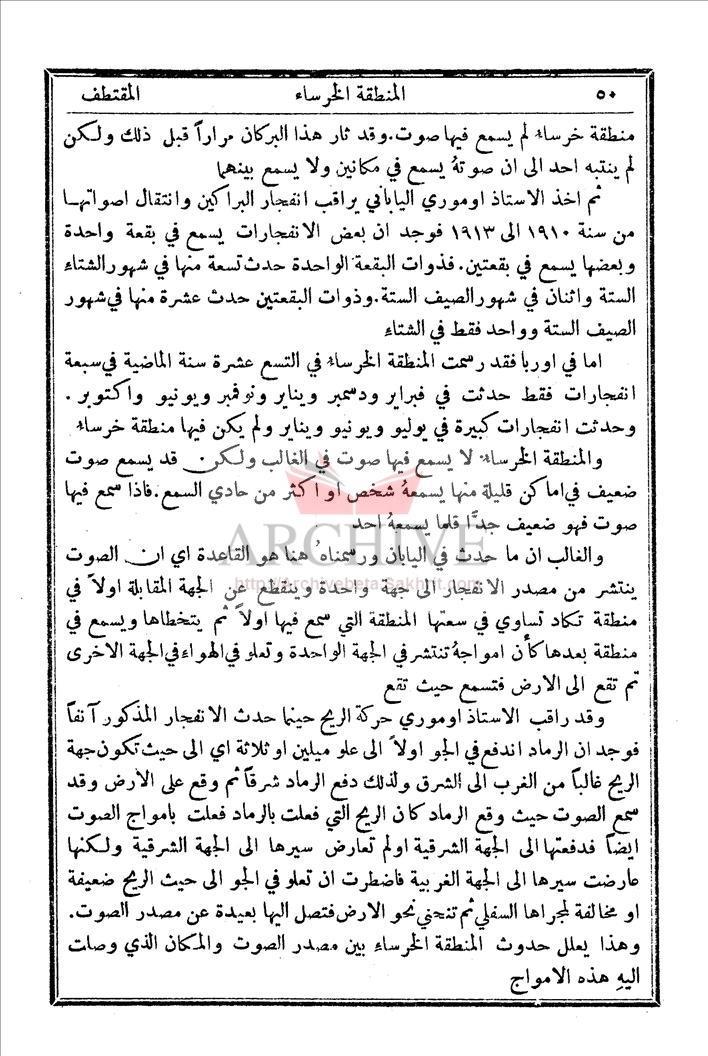 ٥٠ المنطقة الخرساء المقتطف
منطقة خرساء لم يسمع فيها صوت. وقد ثار هذا البركان مراراً قبل ذلك ولكن
لم ينتبه احد الى ان صوتهُ يسمع في مكانين ولا يسمع بينهما
ثم اخذ الاستاذ اوموري الياباني يراقب انفجار البراكين وانتقال اصواتها
من سنة ١٩١٠ الى ١٩١٣ فوجد ان بعض الانفجارات يسمع في بقعة واحدة
وبعضها يسمع في بقعتين. فذوات البقعة الواحدة حدث تسعة منها في شهور الشتاء
الستة واثنان في شهور الصيف الستة. وذوات البقعتين حدث عشرة منها في شهور
الصيف الستة وواحد فقط في الشتاء
اما في اوربا فقد رسمت المنطقة الخرساء في التسع عشرة سنة الماضية في سبعة
انفجارات فقط حدثت في فبراير ودسمبر ويناير ونوفمبر ويونيو واكتوبر .
وحدثت انفجارات كبيرة في يوليو ويونيو ويناير ولم يكن فيها منطقة خرساء
والمنطقة الخرساء لا يسمع فيها صوت في الغالب ولكن قد يسمع صوت
ضعيف في اماكن قليلة منها يسمعهُ شخص او اكثر من حادي السمع. فاذا سمع فيها
صوت فهو ضعيف جدًّا قلما يسمعهُ احد
ARCHIVE
والغالب ان ما حدث في اليابان ورسمناهُ هنا هو القاعدة اي ان الصوت
http://Archivebeta.Sakhrit.com
ينتشر من مصدر الانفجار الى جهة واحدة وينقطع عن الجهة المقابلة اولاً في
منطقة تكاد تساوي في سعتها المنطقة التي سمع فيها اولاً ثم يتخطاها ويسمع في
منطقة بعدها كأن امواجهُ تنتشر في الجهة الواحدة وتعلو في الهواء في الجهة الاخرى
ثم تقع الى الارض فتسمع حيث تقع
وقد راقب الاستاذ اوموري حركة الريح حينما حدث الانفجار المذكور آنفاً
فوجد ان الرماد اندفع في الجو اولاً الى علو ميلين او ثلاثة اي الى حيث تكون جهة
الريح غالباً من الغرب الى الشرق ولذلك دفع الرماد شرقاً ثم وقع على الارض وقد
سمع الصوت حيث وقع الرماد كان الريح التي فعلت بالرماد فعلت بامواج الصوت
ايضاً فدفعتها الى الجهة الشرقية او لم تعارض سيرها الى الجهة الشرقية ولكنها
عارضت سيرها الى الجهة الغربية فاضطرت ان تعلو في الجو الى حيث الريح ضعيفة
او مخالفة لمجراها السفلي ثم تنحني نحو الارض فتصل اليها بعيدة عن مصدر الصوت.
وهذا يعلل حدوث المنطقة الخرساء بين مصدر الصوت والمكان الذي وصلت
اليهِ هذه الامواج